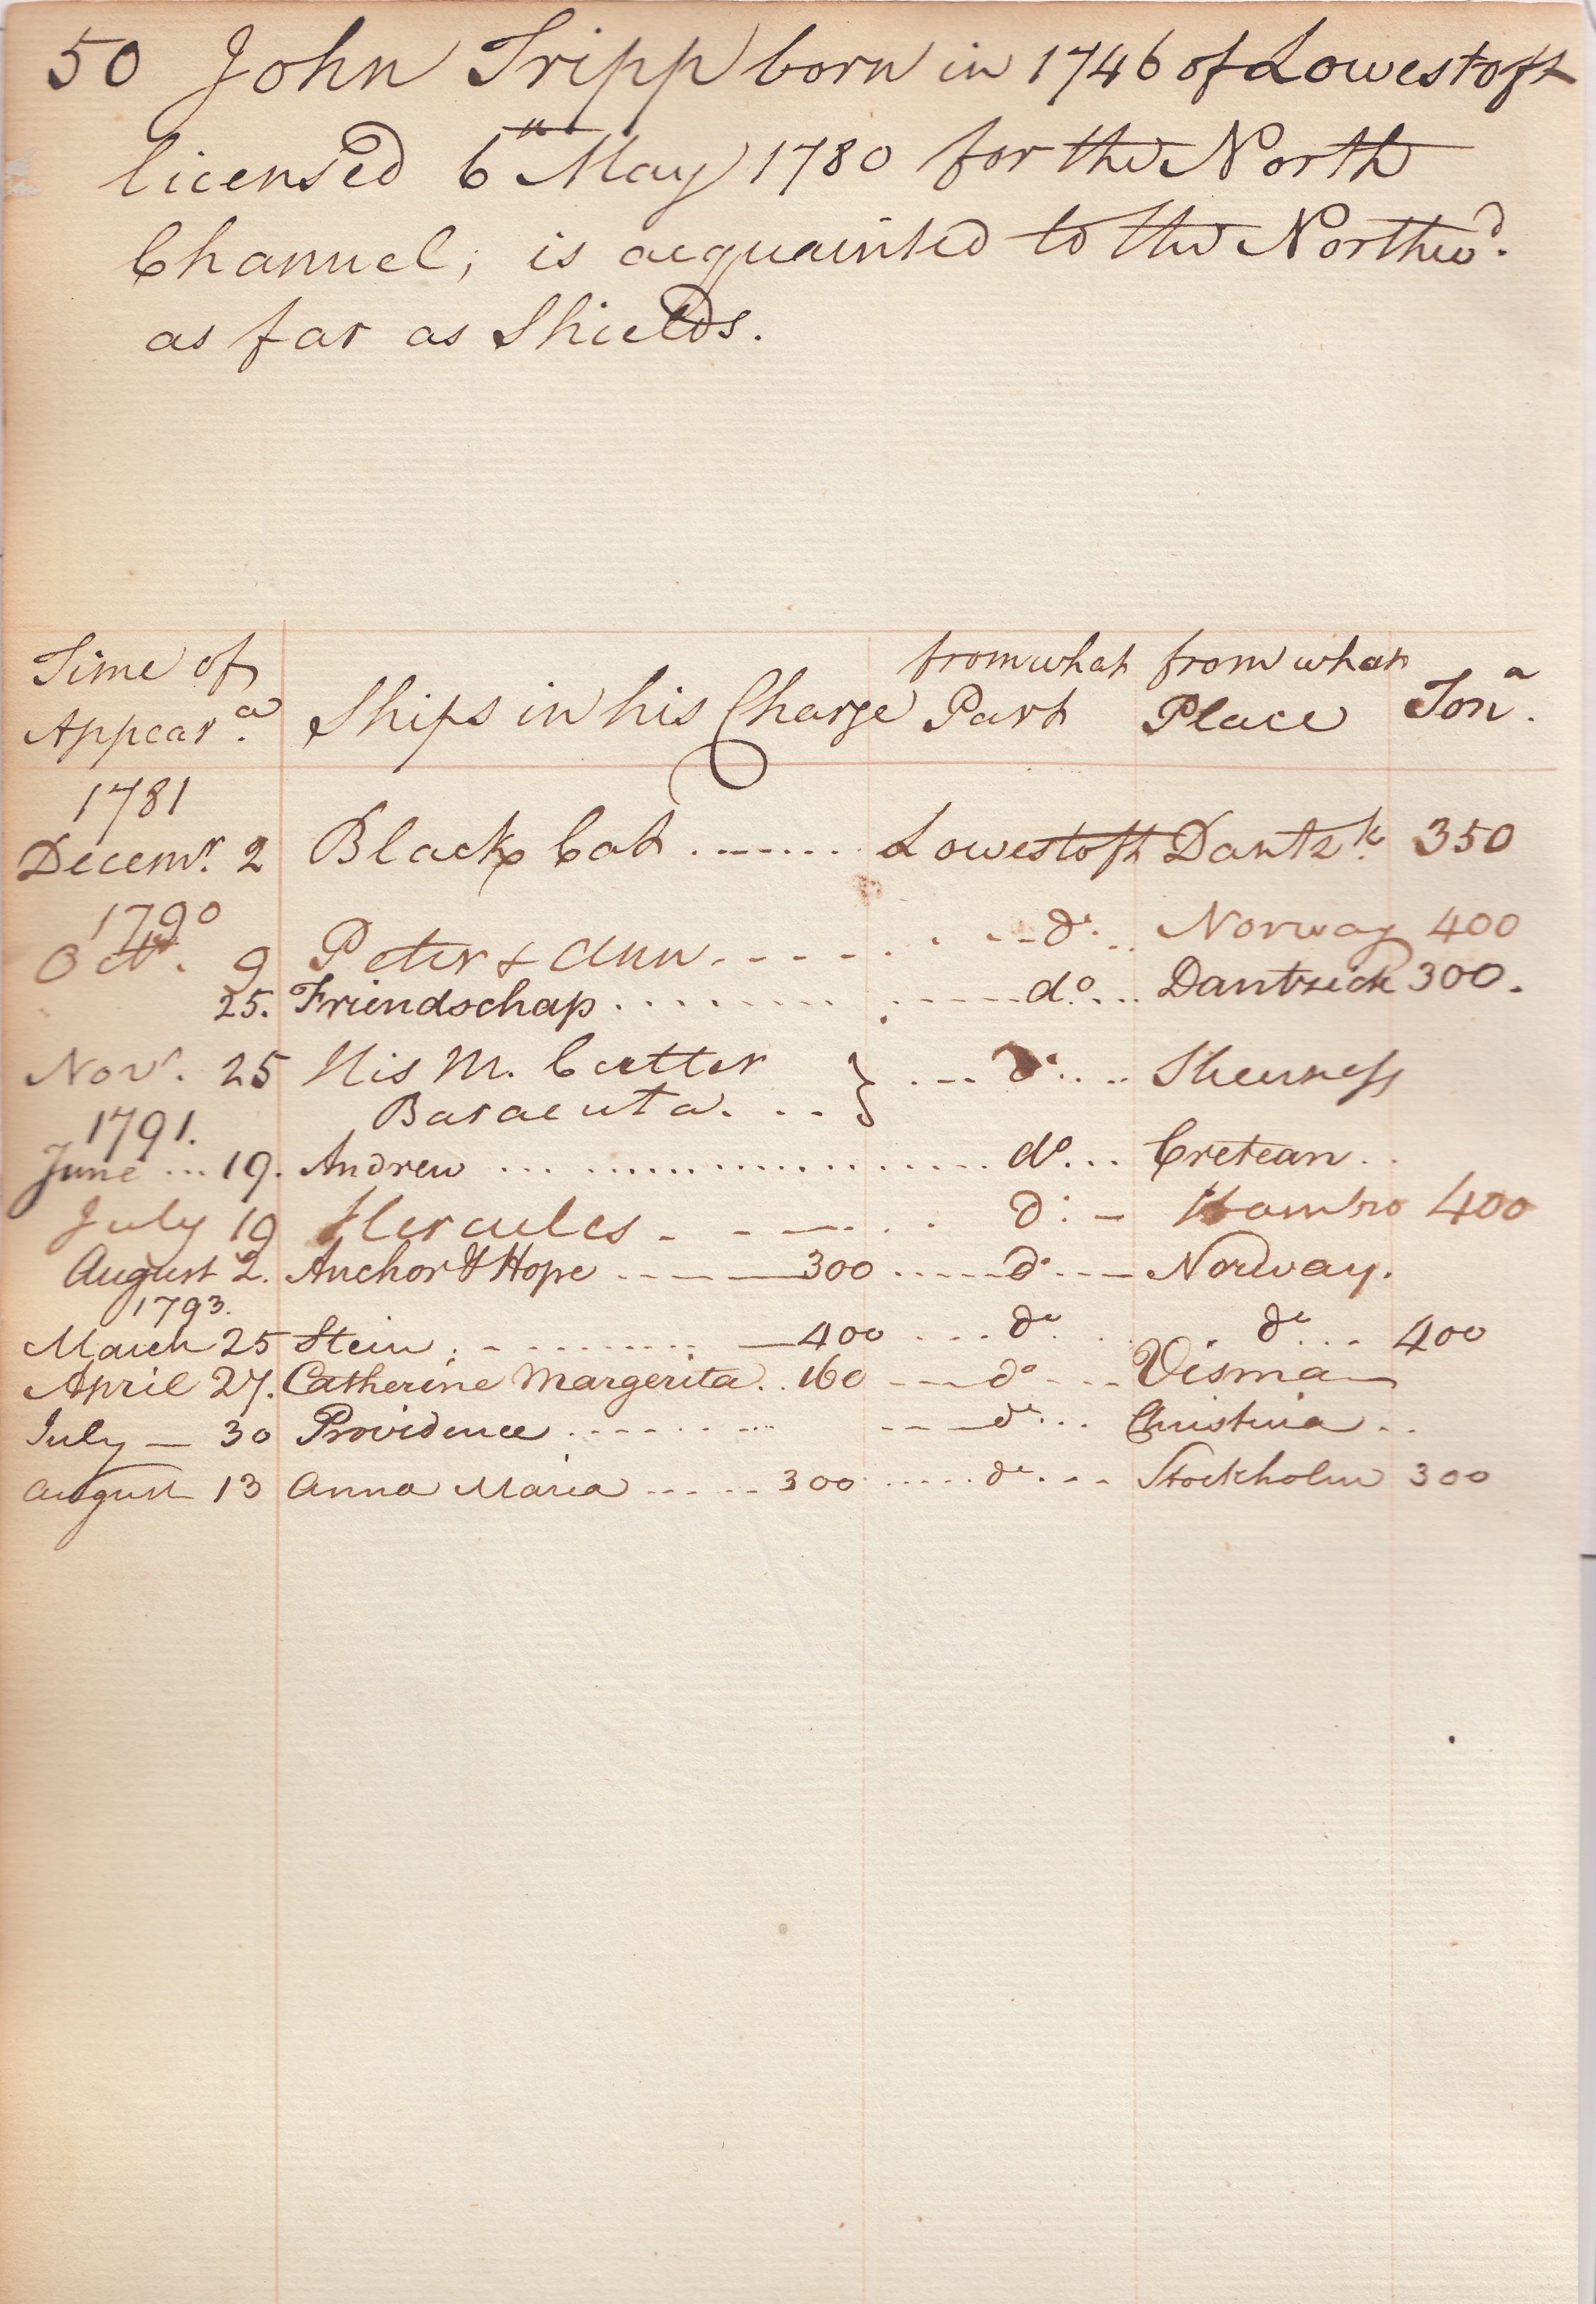 50 John Tripp born in 1746 of Lowestoft
licensed 6th May 1780 for the North
Channel; is acquainted to the Northwd.
as far as Shields.
Time of Appeara. Ships in his Charge from what Part from what Place Tona.
1781
Decemr. 2 Black Cat ........ Lowestoft Dantzk. 350
1790
Octr. 9 Peter & Ann ..... do. Norway 400
25. Friendschap ........ do. ... Dantzick 300.
Novr. 25 His M. Cutter } ... do. ... Sheerness
Baracuta. ..
1791.
June ... 19. Andrew ........ do... Cretean..
July 19 Hercules ..... do. - Hambro 400
August 2. Anchor & Hope ..... 300 ..... do. --- Norway.
1793.
March 25 Stein ........ 400 .... do. do. ... 400
April 27. Catherine Margerita.. 160 --- do. --- Wisma
July — 30 Providence ........ do. ... Christina ..
August 13 Anna Maria ..... 300 ..... do. ... Stockholm 300